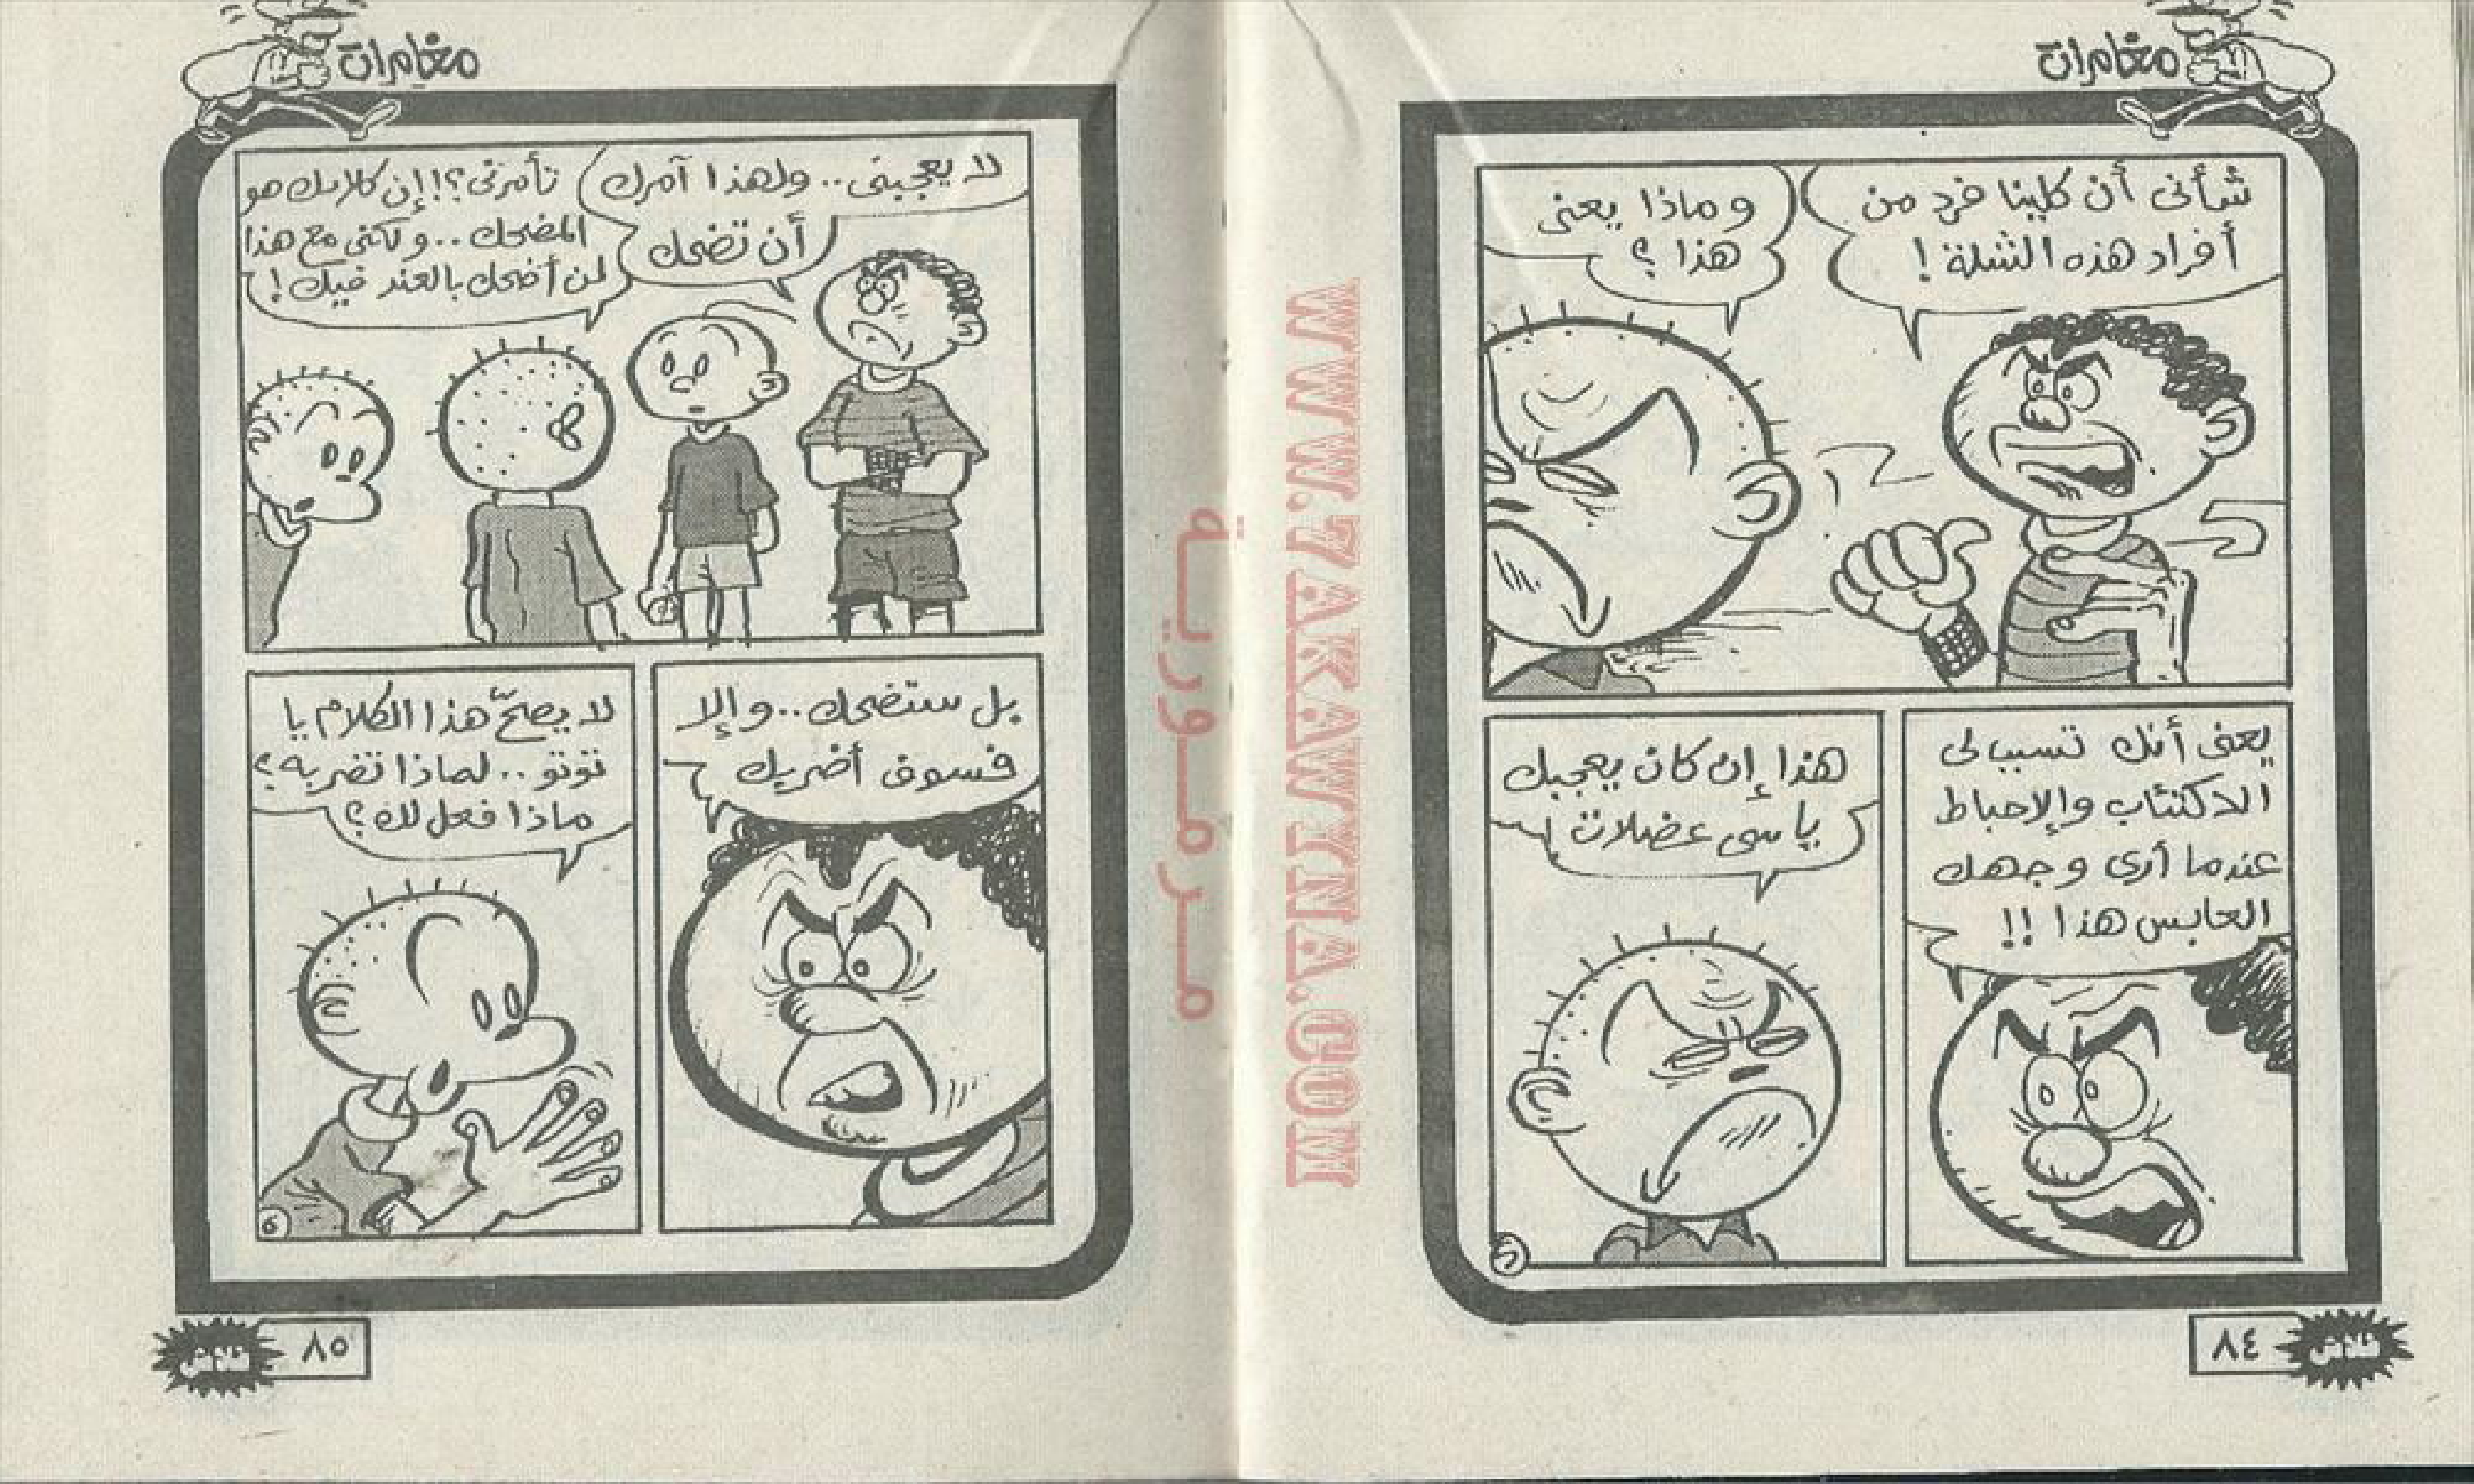 مغامرات
شأنى أن كلينا فرد من
أفراد هذه الشلة !
وماذا يعنى
هذا ؟
يعنى أنك تسبب لى
الاكتئاب والإحباط
عندما أرى وجهك
العابس هذا !!
هذا إن كان يعجبك
يا سى عضلات
٥
٨٤
فلاش
مغامرات
لا يعجبنى .. ولهذا آمرك
أن تضحك
تأمرنى ؟!! إن كلامك هو
المضحك .. ولكنى مع هذا
لن أضحك بالعند فيك !
بل ستضحك .. وإلا
فسوف أضربك
لا يصحّ هذا الكلام يا
توتو .. لماذا تضربه ؟
ماذا فعل لك ؟
6
٨٥
فلاش
WWW.7AKAWYNA.COM